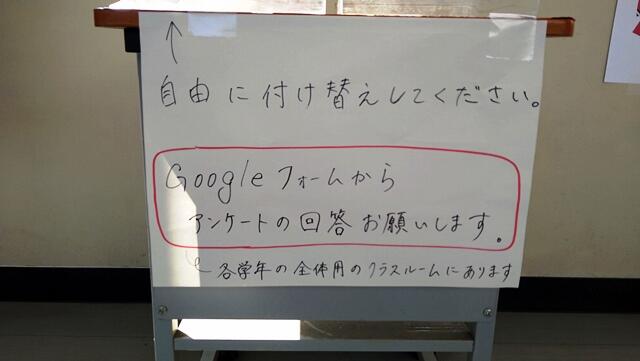 ↑
自由に付け替えしてください。
Googleフォームから
アンケートの回答お願いします。
各学年の全体用のクラスルームにあります